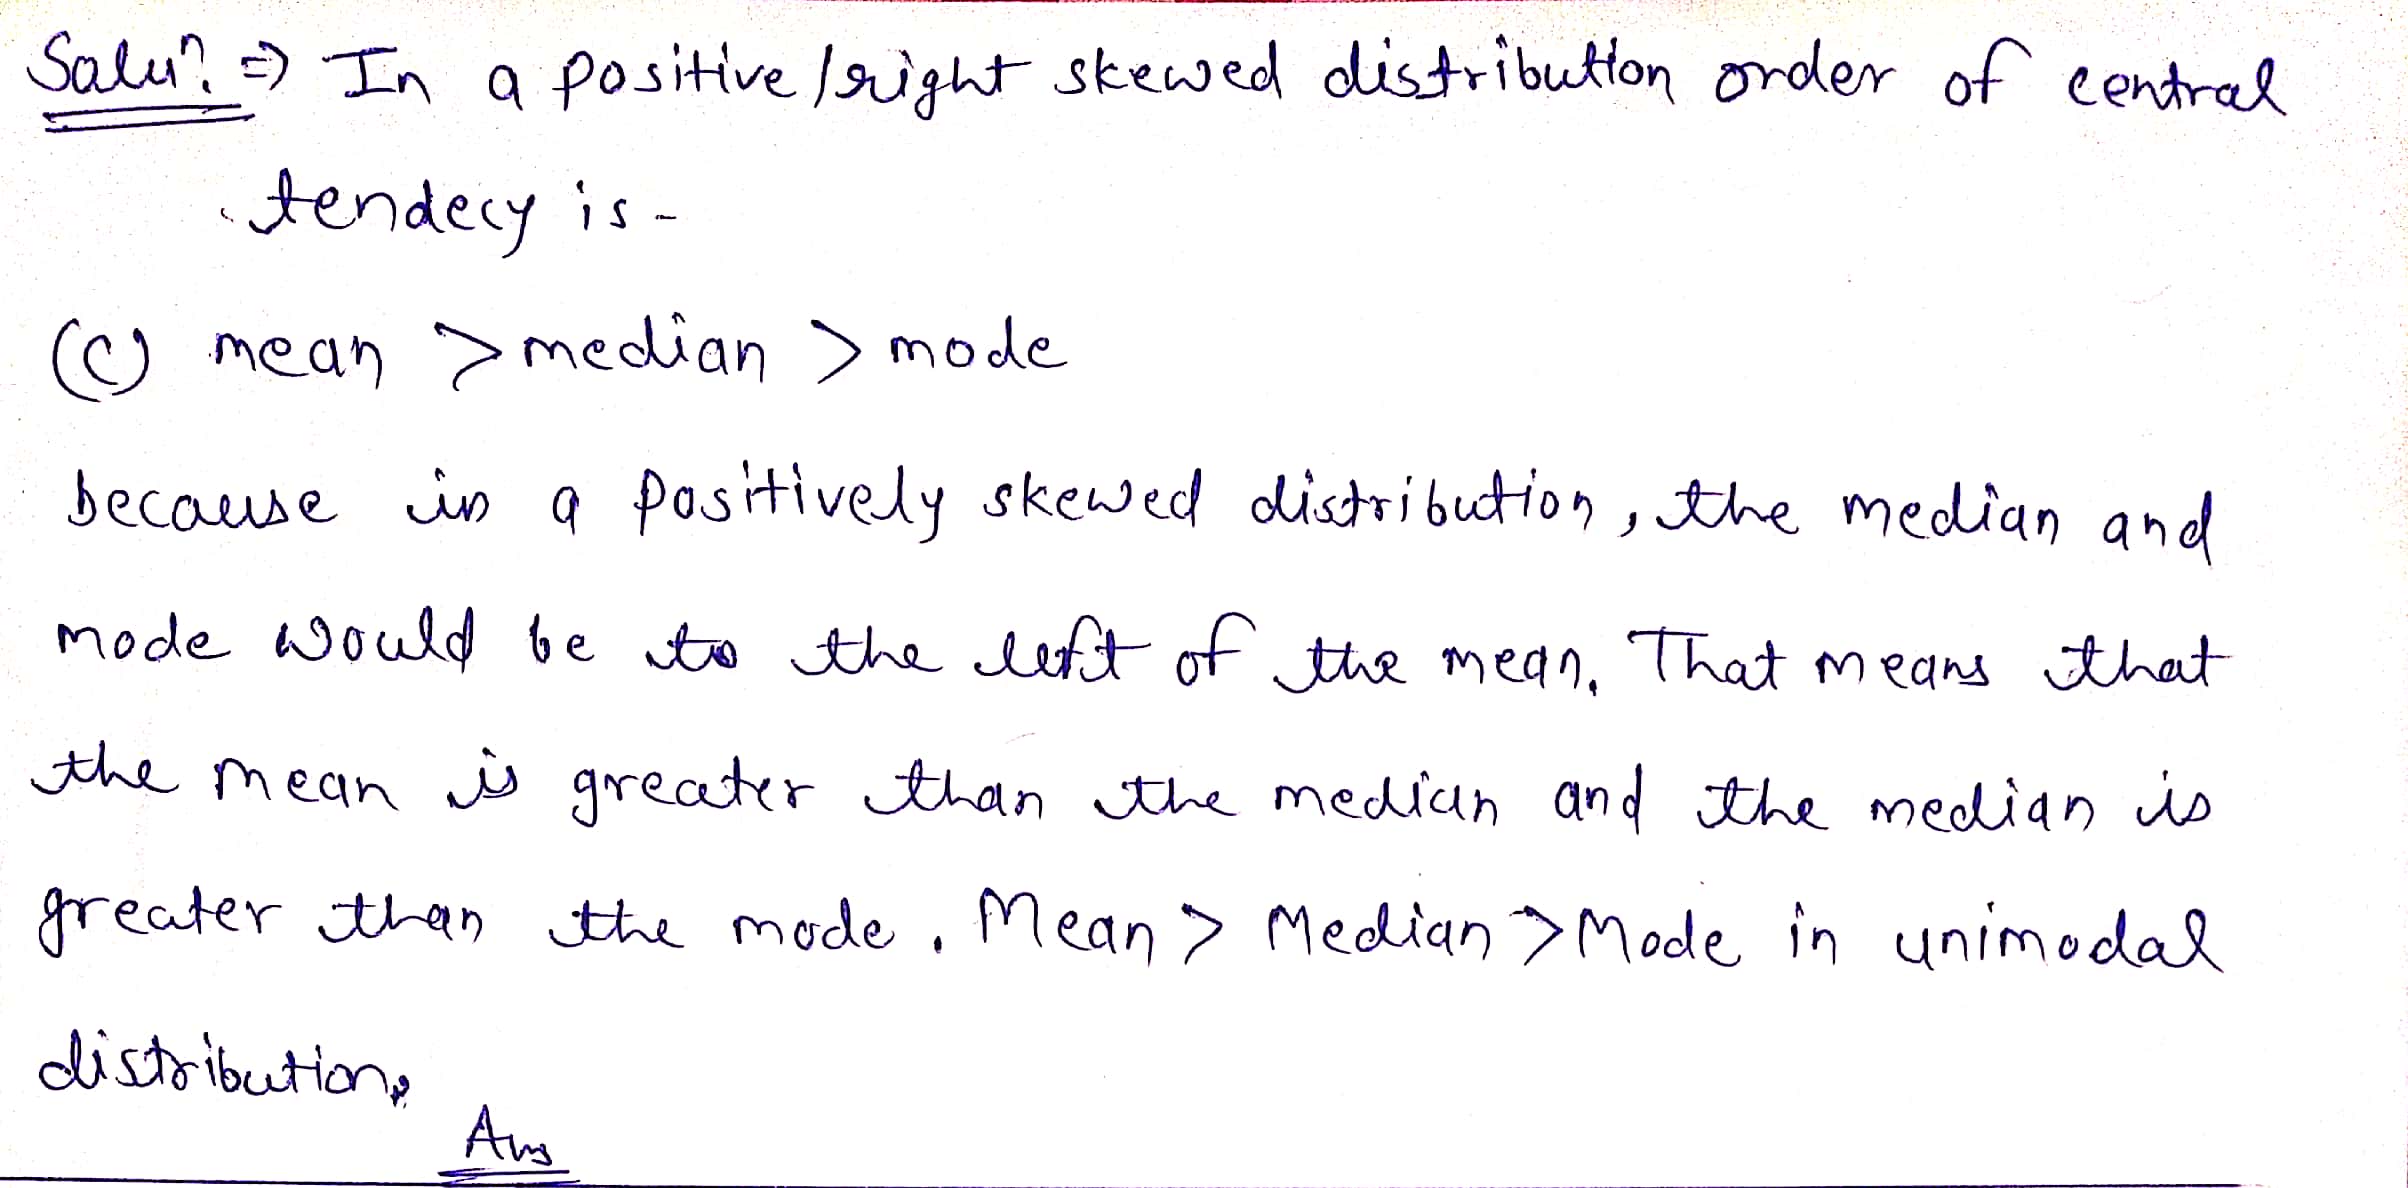 Solun. => In a positive/right skewed distribution order of central
tendecy is -
(c) mean > median > mode
because in a positively skewed distribution, the median and
mode would be to the left of the mean. That means that
the mean is greater than the median and the median is
greater than the mode. Mean > Median > Mode in unimodal
distribution.
Ans